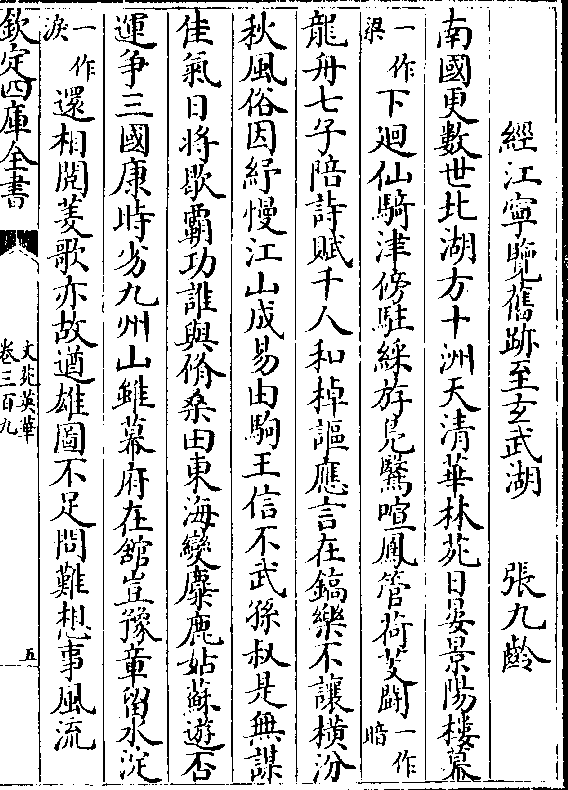 經江寧覽舊跡至玄武湖 張九齡
南國更數世北湖方十洲天清華林苑日晏景陽樓幕
一作梁下廻仙騎津傍駐綵斿鳧鷖喧鳳管荷芰鬬一作暗
龍舟七子陪詩賦千人和棹謳應言在鎬樂不讓橫汾
秋風俗因紓慢江山成易由駒王信不武孫叔是無謀
佳氣日將歇霸功誰與脩桑田東海變麋鹿姑蘇遊否
運爭三國康時劣九州山雖幕府在舘豈豫章留水淀
一作淚還相閱菱歌亦故遒雄圖不足問難想事風流
欽定四庫全書
文苑英華
卷三百九
五